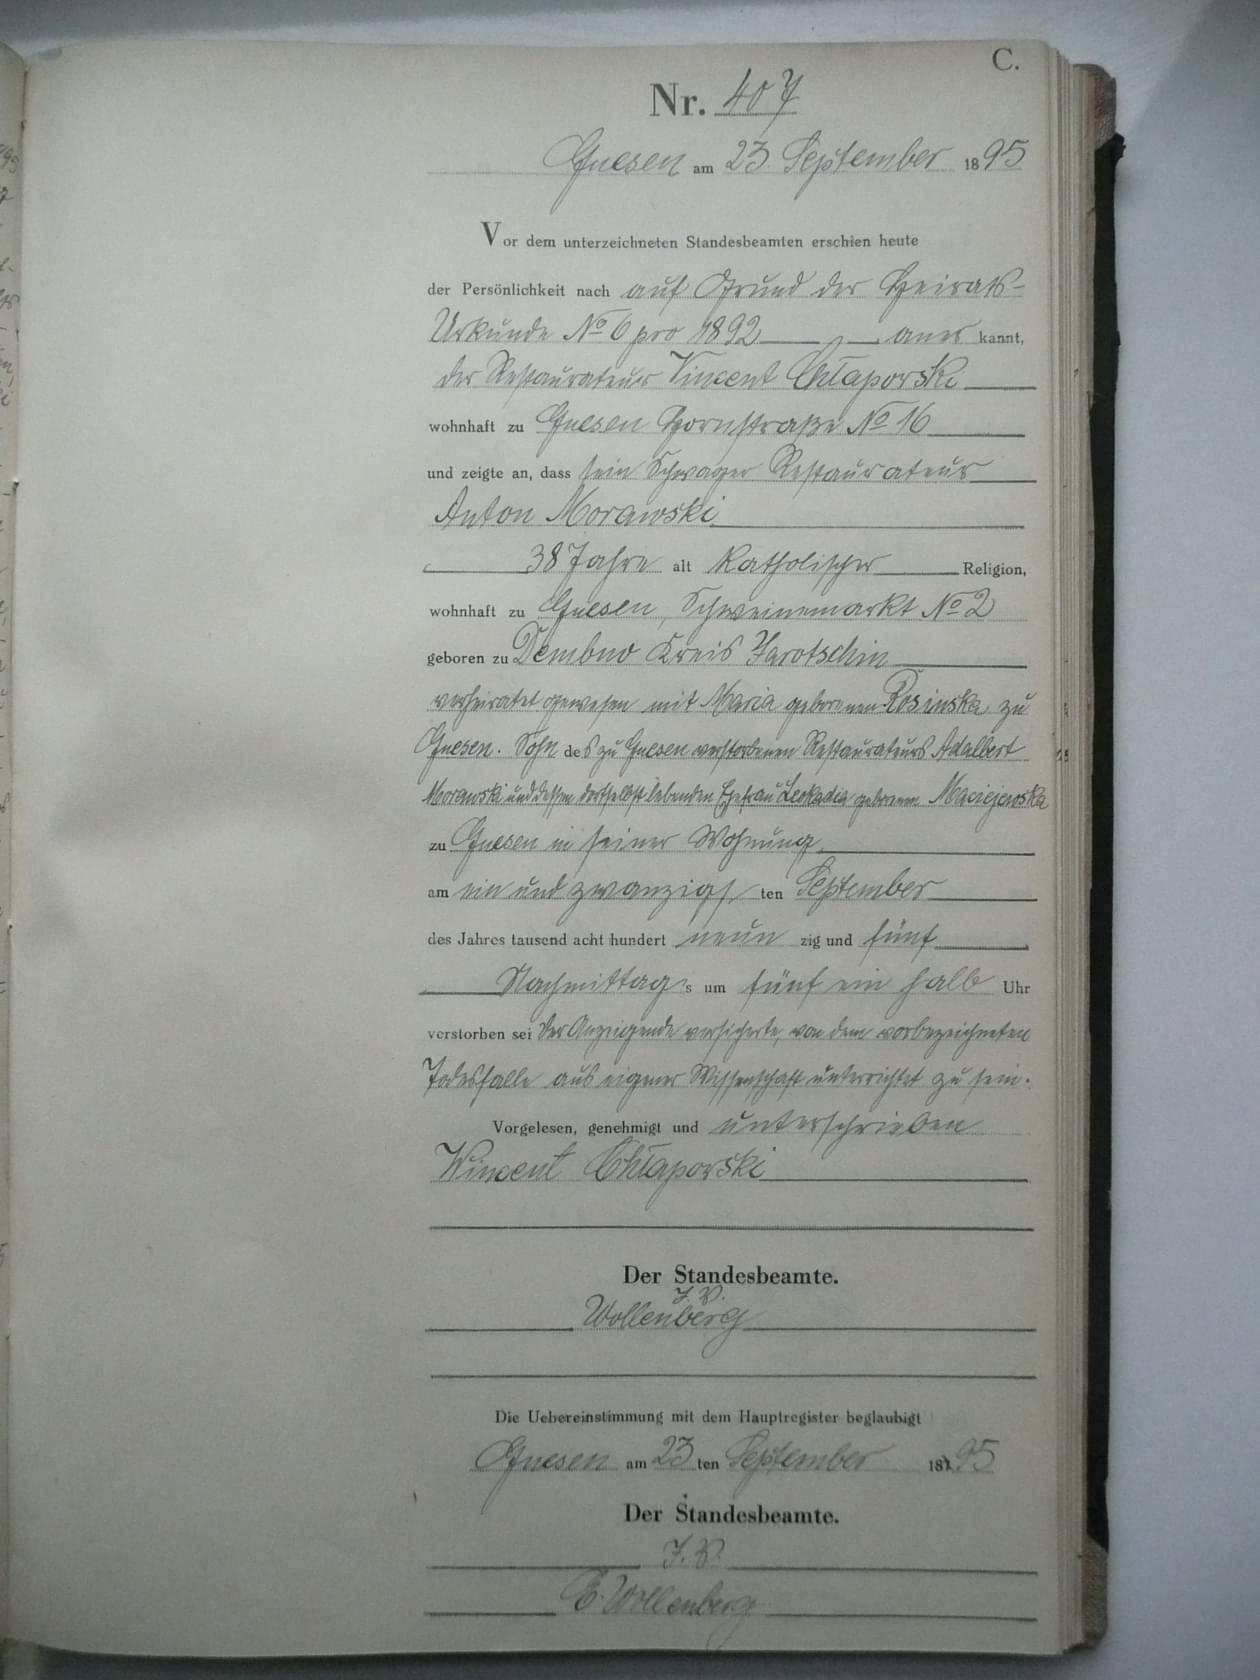 C.
Nr. 407
Gnesen am 23. September 1895
Vor dem unterzeichneten Standesbeamten erschien heute
der Persönlichkeit nach auf Grund der Heirats-
Urkunde No 6 pro 1892 aner kannt,
der Restaurateur Vincent Chłapowski
wohnhaft zu Gnesen Hornstraße No 16
und zeigte an, dass sein Schwager Restaurateur
Anton Morawski
38 Jahre alt katholischer Religion,
wohnhaft zu Gnesen, Schweinemarkt No 2
geboren zu Dembno Kreis Jarotschin
verheiratet gewesen mit Maria geborenen Rosinska zu
Gnesen. Sohn des zu Gnesen verstorbenen Restaurateurs Adalbert
Morawski und dessen dortselbst lebenden Ehefrau Leokadia geborenen Maciejewska
zu Gnesen in seiner Wohnung
am ein und zwanzigs ten September
des Jahres tausend acht hundert neun zig und fünf
Nachmittags um fünf ein halb Uhr
verstorben sei der Anzeigende versicherte, von dem vorbezeichneten
Todesfalle aus eigener Wissenschaft unterrichtet zu sein.
Vorgelesen, genehmigt und unterschrieben
Wincent Chłapowski
Der Standesbeamte.
J. V.
Wollenberg
Die Uebereinstimmung mit dem Hauptregister beglaubigt
Gnesen am 23 ten September 1895
Der Standesbeamte.
J. V.
E. Wollenberg